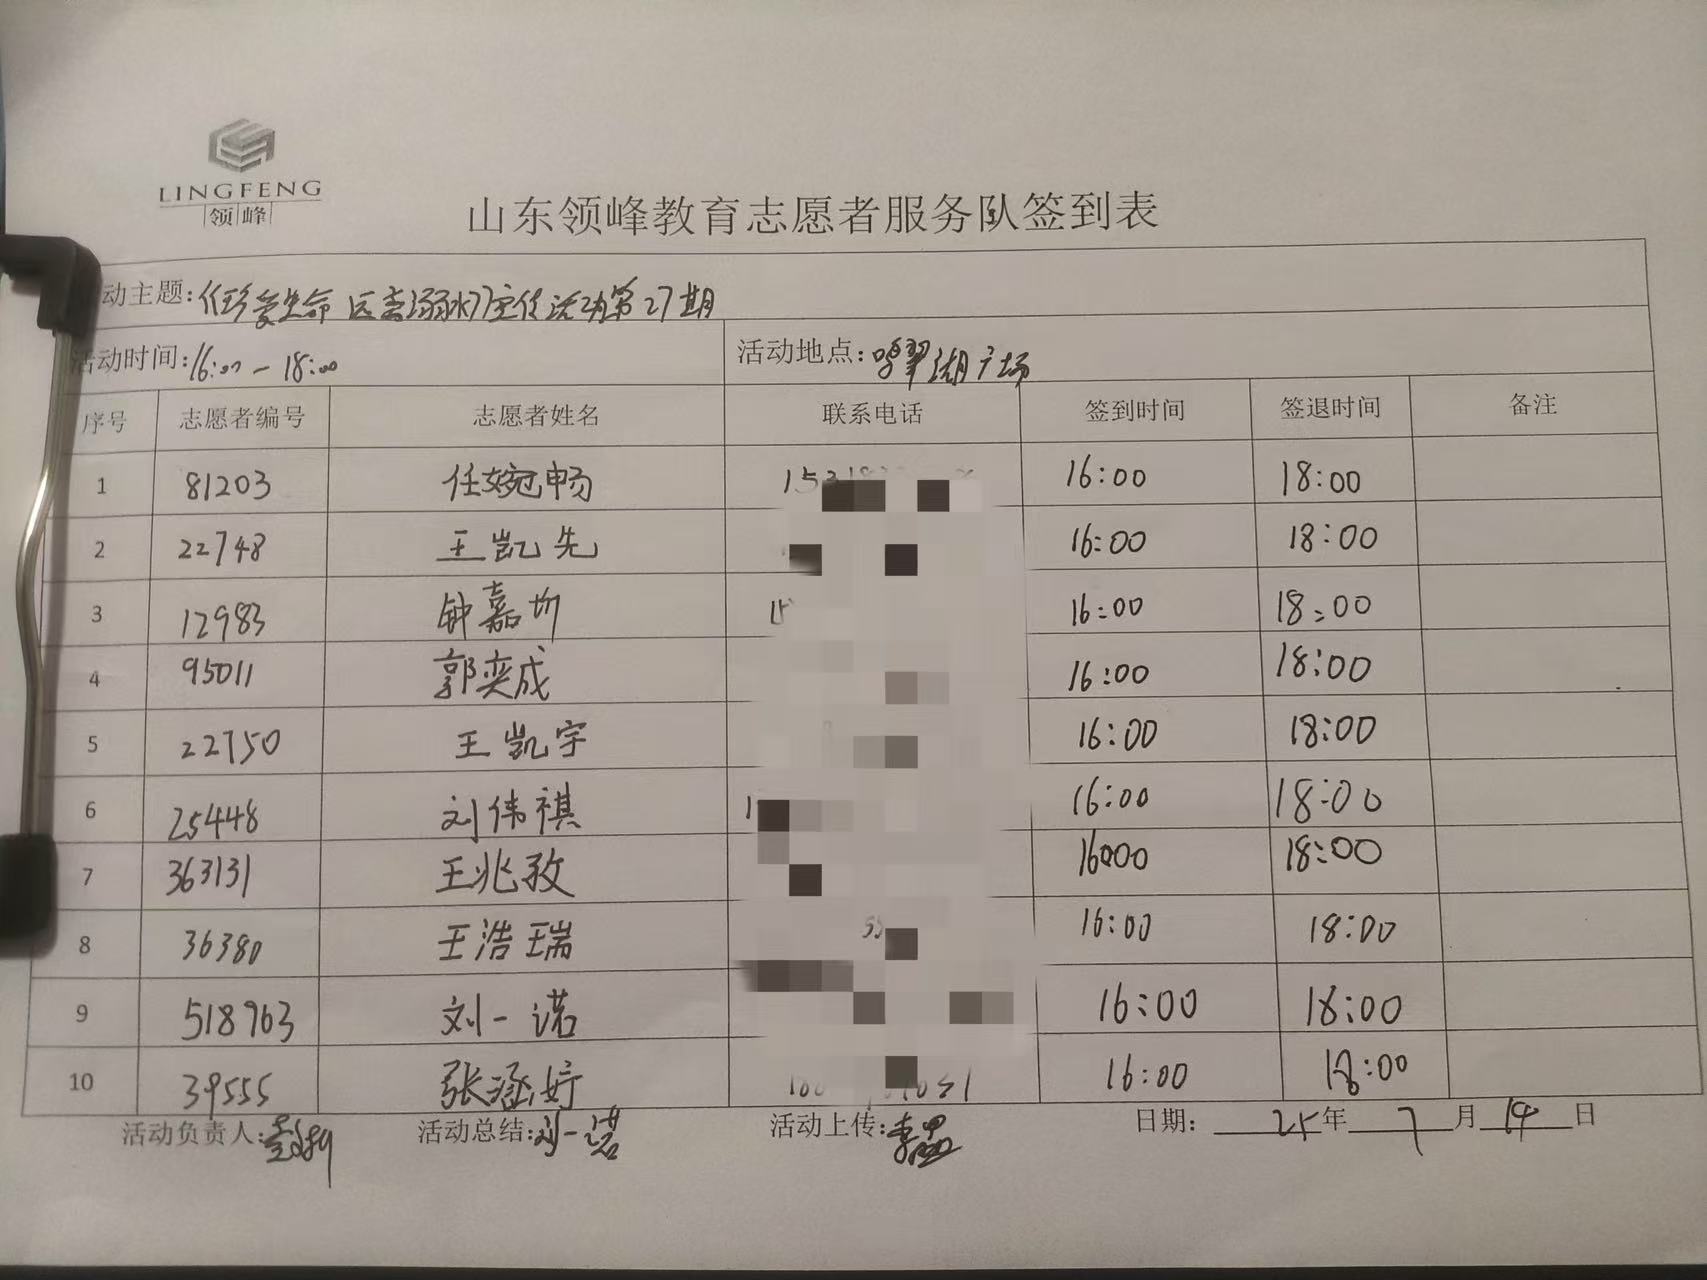 LINGFENG
领峰
山东领峰教育志愿者服务队签到表
动主题:《珍爱生命 远离溺水》宣传活动第27期
活动时间:16:00-18:00 活动地点:鸣翠湖广场
序号 志愿者编号 志愿者姓名 联系电话 签到时间 签退时间 备注
1 81203 任婉畅 16:00 18:00
2 22748 王凯先 16:00 18:00
3 12983 钟嘉昀 16:00 18:00
4 95011 郭奕成 16:00 18:00
5 22750 王凯宇 16:00 18:00
6 25448 刘伟祺 16:00 18:00
7 363131 王兆孜 16:00 18:00
8 36380 王浩瑞 16:00 18:00
9 518963 刘一诺 16:00 18:00
10 39555 张涵婷 16:00 18:00
活动负责人: 活动总结:刘一诺 活动上传: 日期: 25年7月14日